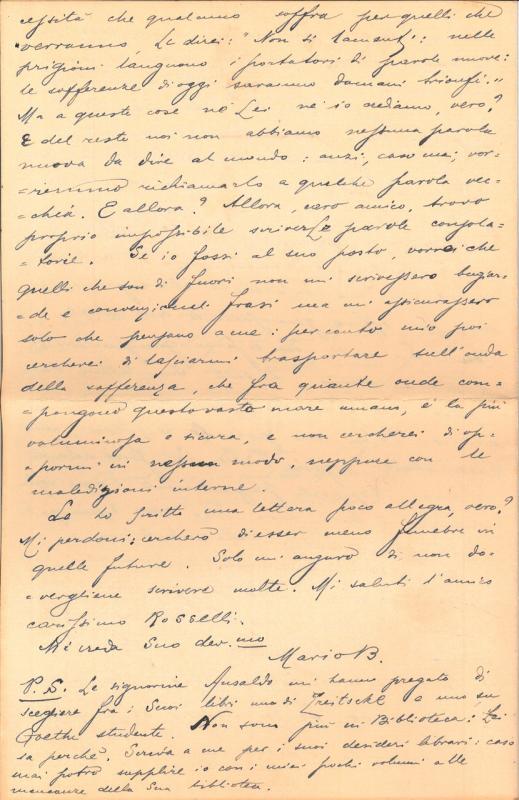 cessità che qualcuno soffra per quelli che
verranno, Le direi: "Non si lamenti: nelle
prigioni languono i portatori di parole nuove:
le sofferenze di oggi saranno domani trionfi."
Ma a queste cose nè Lei nè io crediamo, vero?
E del resto noi non abbiamo nessuna parola
nuova da dire al mondo: anzi, caso mai, vor-
-remmo richiamarlo a qualche parola vec-
-chia. E allora? Allora, caro amico, trovo
proprio impossibile scriverLe parole consola-
-torie. Se io fossi al suo posto, vorrei che
quelli che son di fuori non mi scrivessero bugiar-
-de e convenzionali frasi ma mi assicurassero
solo che pensano a me: per conto mio poi
cercherei di lasciarmi trasportare sull'onda
della sofferenza, che fra quante onde com-
-pongono questo vasto mare umano, è la più
voluminosa e sicura, e non cercherei di op-
-pormi in nessun modo, neppure con le
maledizioni interne.
Le ho scritto una lettera poco allegra, vero?
Mi perdoni: cercherò di esser meno funebre in
quelle future. Solo mi auguro di non do-
-vergliene scrivere molte. Mi saluti l'amico
carissimo Rosselli.
Mi creda Suo dev.mo
Mario B.
P.S. Le signorine Ansaldo mi hanno pregato di
scegliere fra i Suoi libri uno di Treitschke e uno su
Goethe studente. Non sono più in Biblioteca: Lei
sa perchè. Scriva a me per i suoi desideri librari: caso
mai potrò supplire io con i miei pochi volumi alle
mancanze della Sua biblioteca.